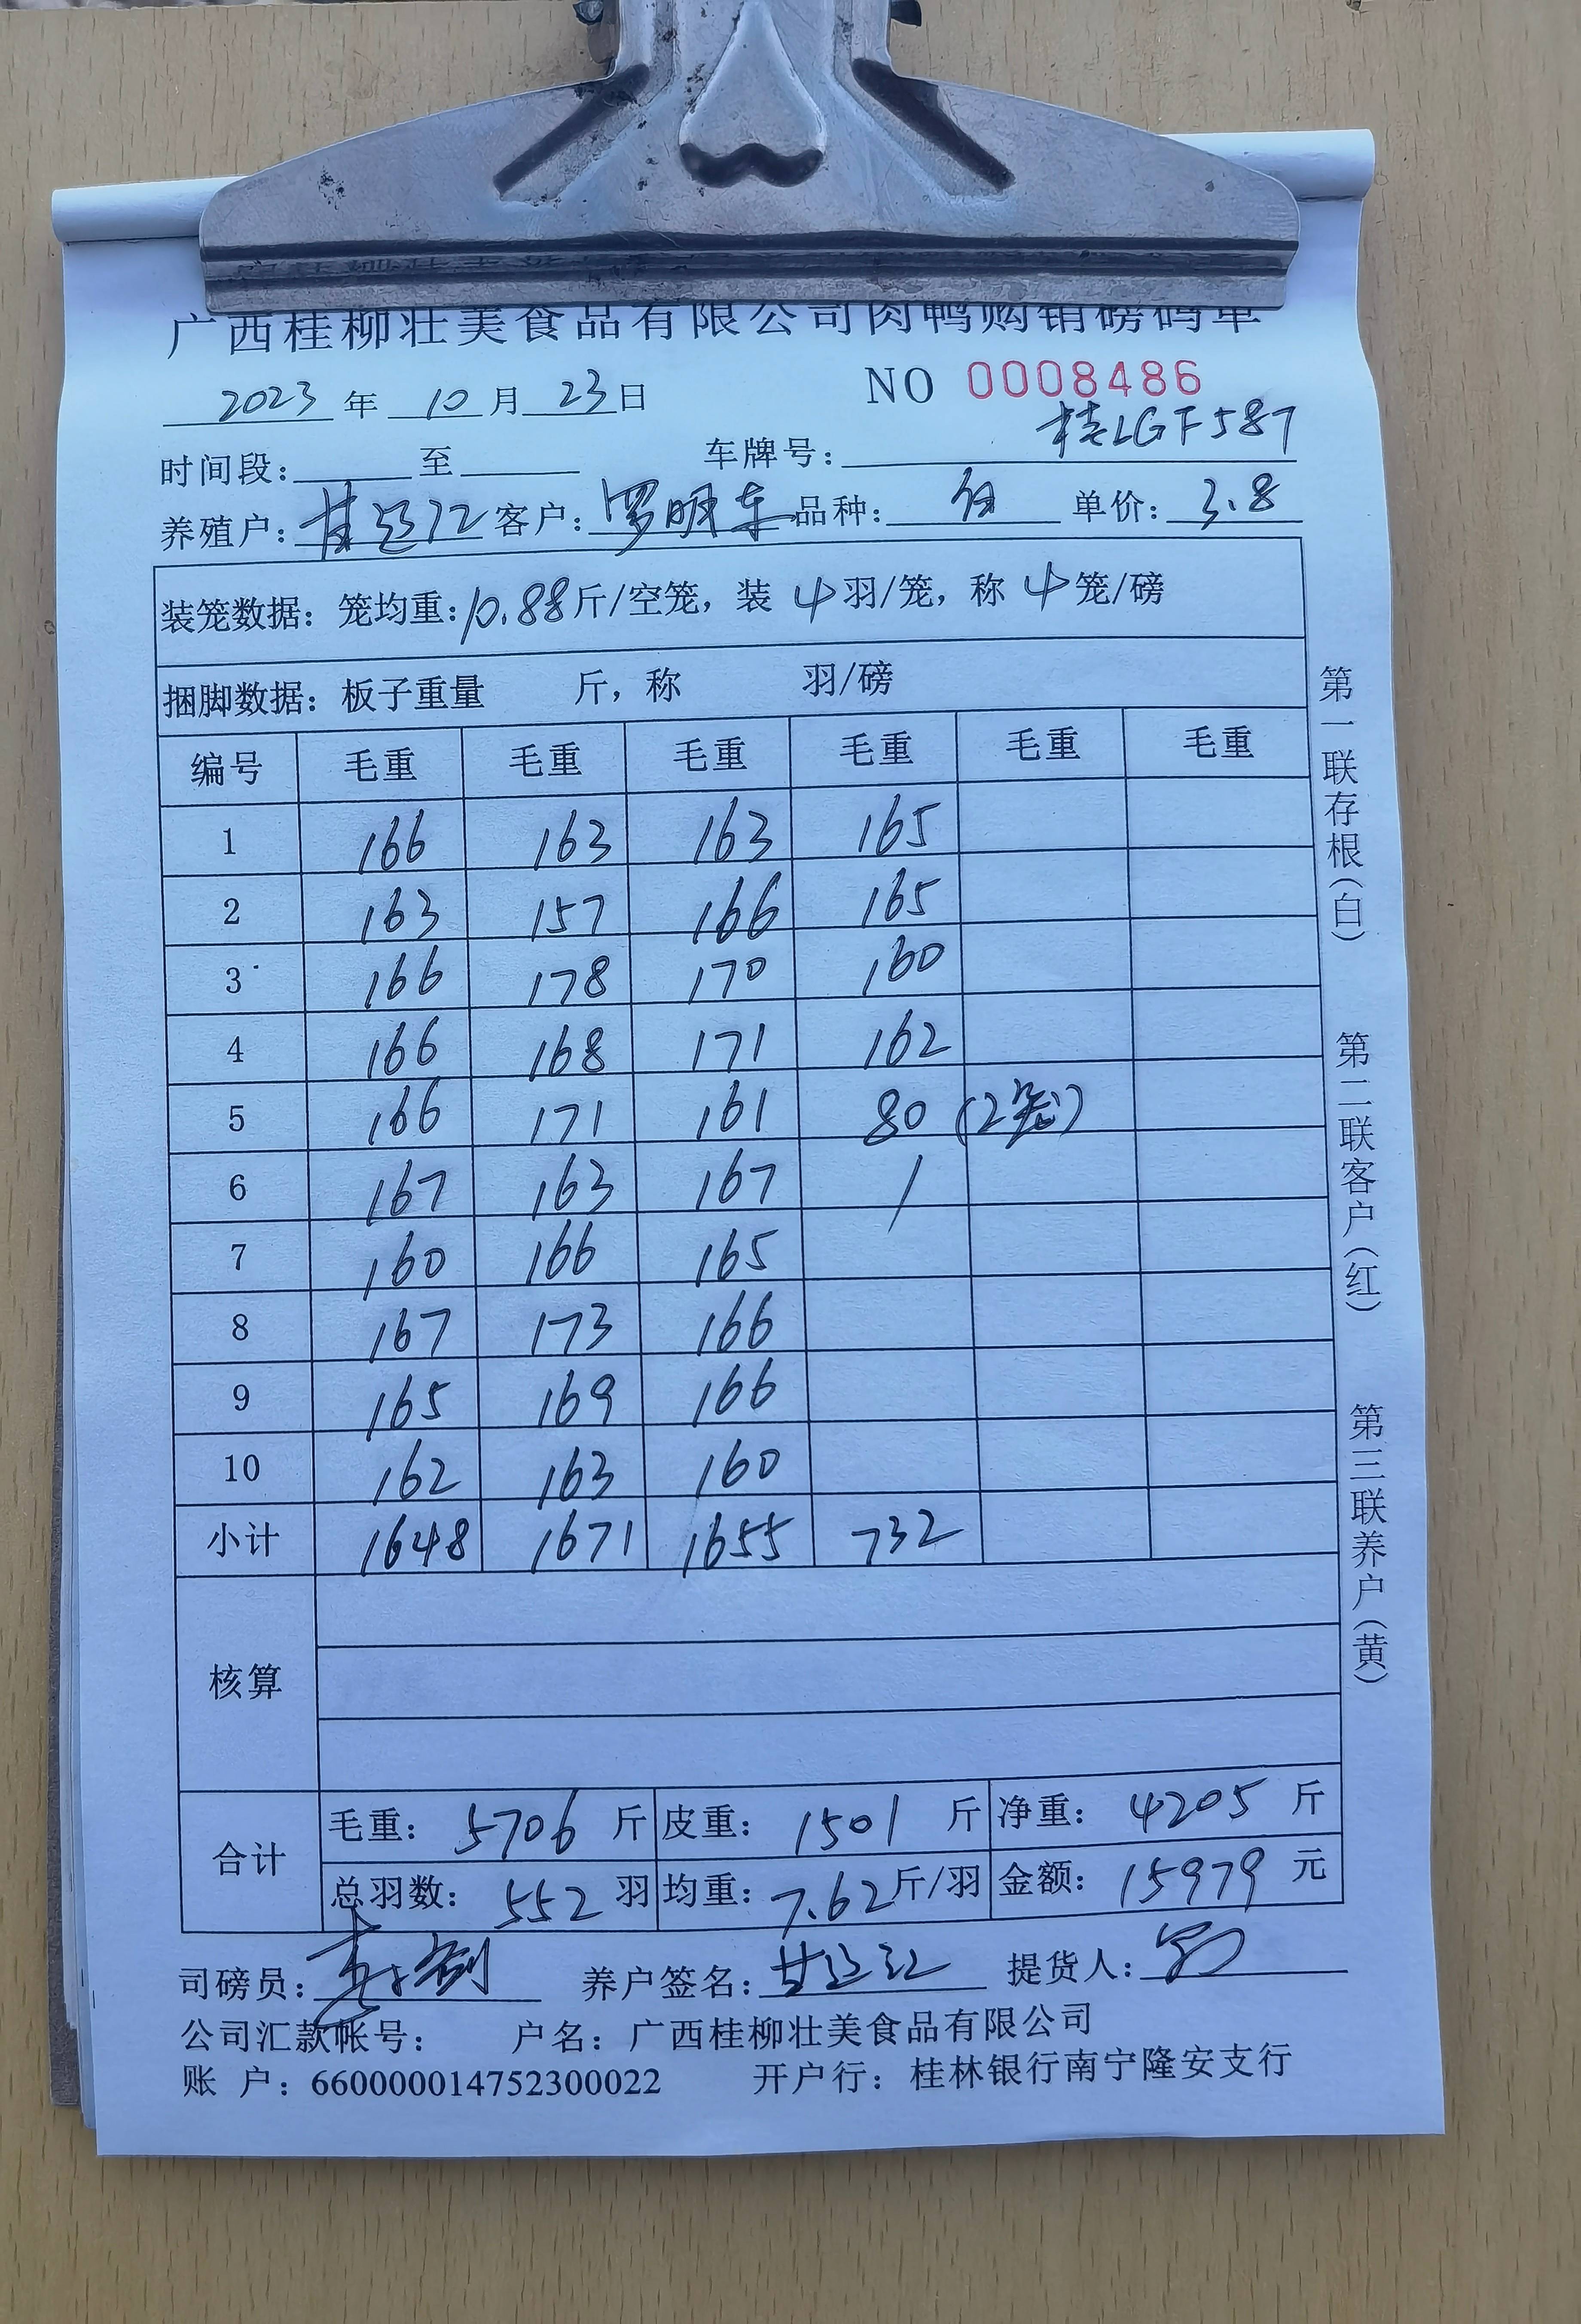 广西桂柳壮美食品有限公司肉鸭购销磅码单
2023 年 10 月 23 日 NO 0008486
时间段: 至 车牌号: 桂LGF587
养殖户: 甘 江 客户: 罗明东 品种: 白 单价: 3.8
装笼数据: 笼均重: 10.88 斤/空笼, 装 4 羽/笼, 称 4 笼/磅
捆脚数据: 板子重量 斤, 称 羽/磅
编号 毛重 毛重 毛重 毛重 毛重 毛重
1 166 163 163 165
2 163 157 166 165
3 166 178 170 160
4 166 168 171 162
5 166 171 161 80 (2笼)
6 167 163 167 /
7 160 166 165
8 167 173 166
9 165 169 166
10 162 163 160
小计 1648 1671 1655 732
核算
合计 毛重: 5706 斤 皮重: 1501 斤 净重: 4205 斤
总羽数: 552 羽 均重: 7.62 斤/羽 金额: 15979 元
司磅员: 养户签名: 甘 江 提货人:
公司汇款帐号: 户名: 广西桂柳壮美食品有限公司
账 户: 660000014752300022 开户行: 桂林银行南宁隆安支行
第一联存根(白) 第二联客户(红) 第三联养户(黄)